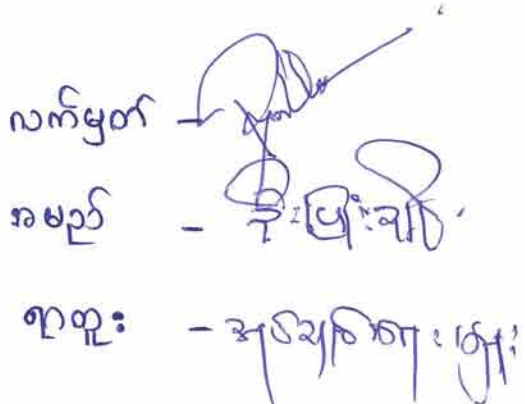 လက်မှတ် -
အမည် - ဦးဖြိုးချို
ရာထူး - အုပ်ချုပ်ရေးမှူး